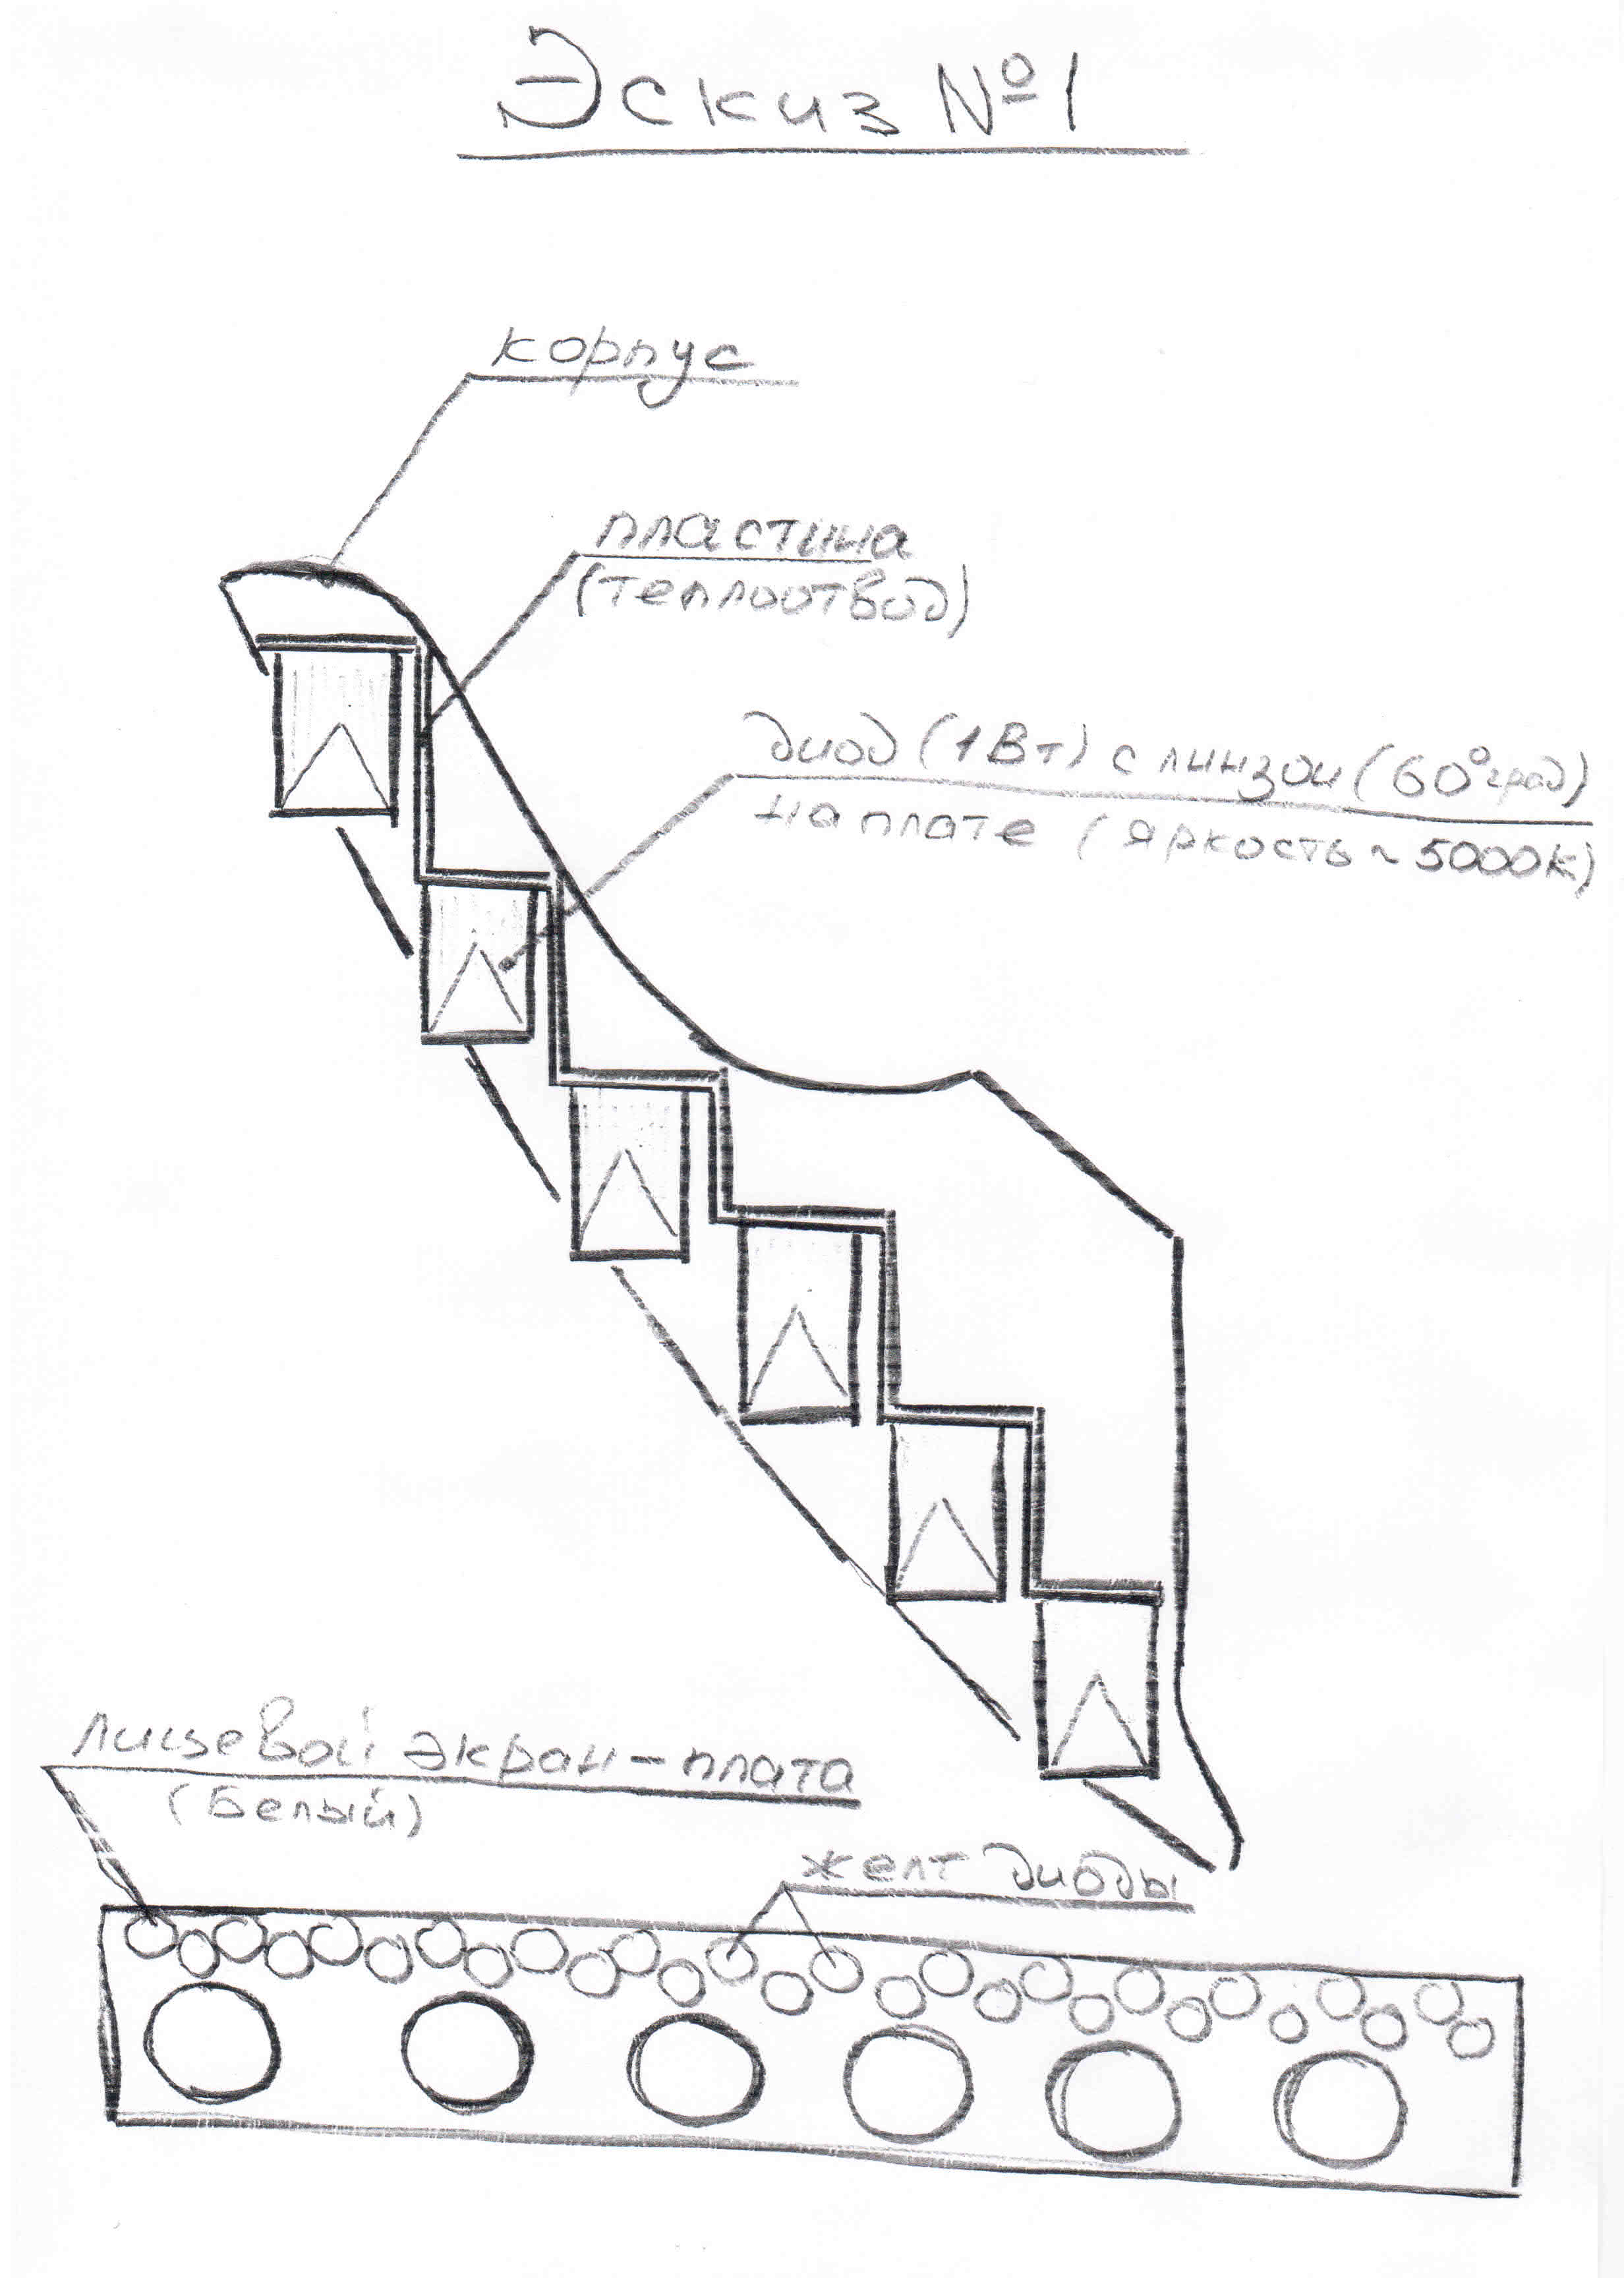 Эскиз №1
корпус
пластина
(теплоотвод)
диод (1Вт) с линзой (60° град)
на плате (яркость ~ 5000К)
лицевой экран-плата
(Белый)
желт диоды